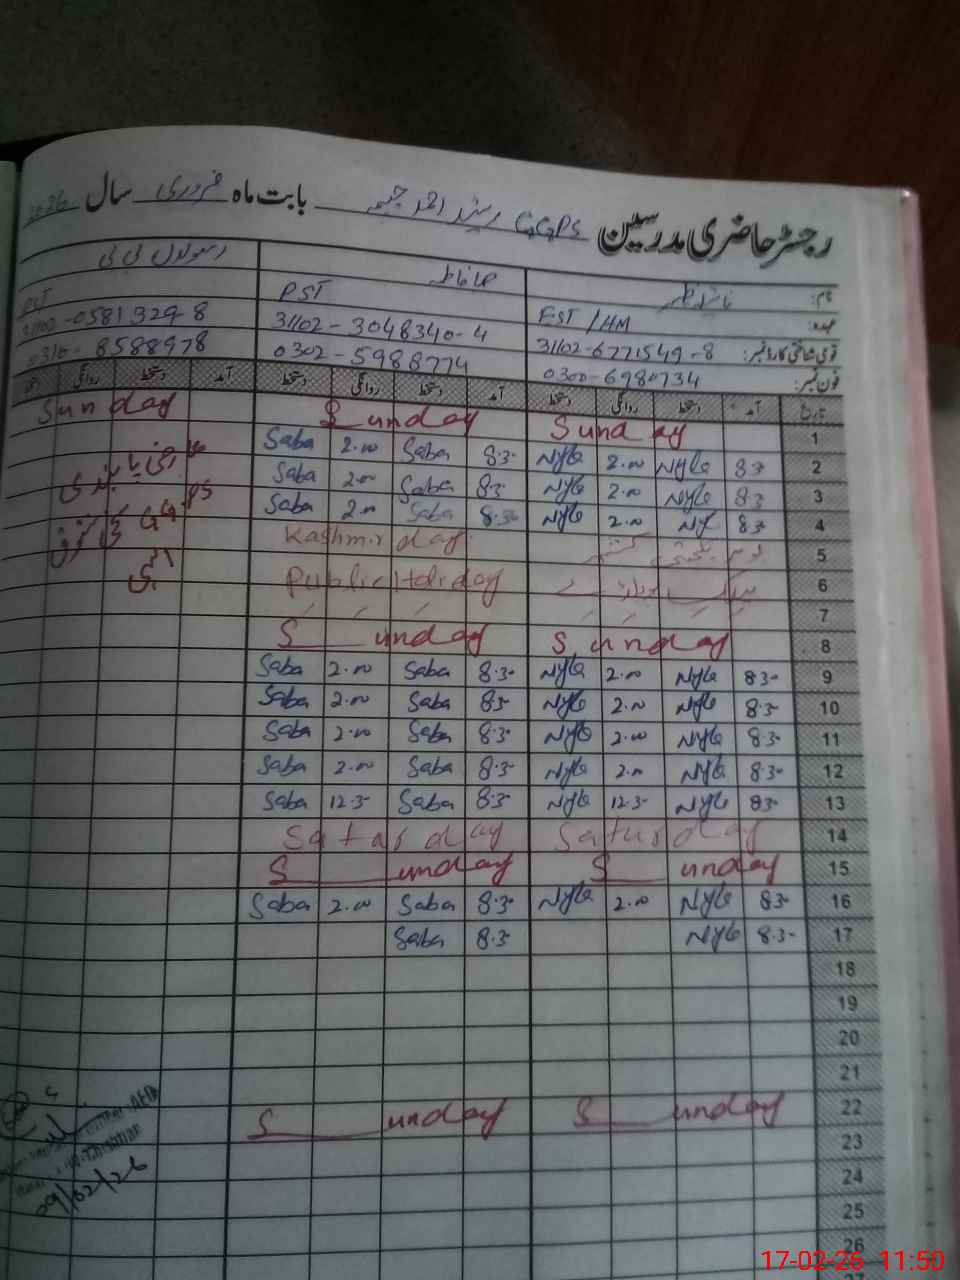 رجسٹر حاضری مدرسین GGPS رشید احمد بابت ماہ فروری سال 2026
نام:
عہدہ: EST / HM PST PST
قومی شناختی کارڈ نمبر: 31102-6771549-8 31102-3048340-4 31102-0581329-8
فون نمبر: 0300-6980734 0302-5988774 0310-8588978
تاریخ آمد دستخط روانگی دستخط آمد دستخط روانگی دستخط آمد دستخط روانگی
1 Sunday Sunday Sunday
2 8.3 Nyla 2.00 Nyla 8.3 Saba 2.00 Saba
3 8.3 Nyla 2.00 Nyla 8.3 Saba 2.00 Saba
4 8.3 Ny 2.00 Nyla 8.30 Saba 2.00 Saba
5 یوم یکجہتی کشمیر Kashmir day
6 Public Holiday
7
8 Sunday Sunday
9 8.30 Nyla 2.00 Nyla 8.30 Saba 2.00 Saba
10 8.3 Nyla 2.00 Nyla 8.5 Saba 2.00 Saba
11 8.3 Nyla 2.00 Nyla 8.3 Saba 2.00 Saba
12 8.30 Nyla 2.00 Nyla 8.3 Saba 2.00 Saba
13 8.30 Nyla 12.3 Nyla 8.3 Saba 12.3 Saba
14 Saturday Satarday
15 Sunday Sunday
16 8.30 Nyla 2.00 Nyla 8.30 Saba 2.00 Saba
17 8.30 Nyla 8.3 Saba
18
19
20
21
22 Sunday Sunday
23
24
25
26
GGPS
09/02/26
17-02-26 11:50